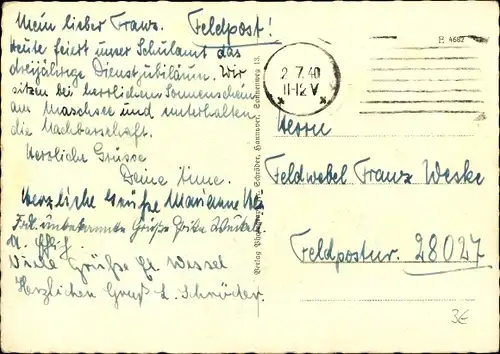 Mein lieber Franz. Feldpost!
Heute feiert unser Schulamt das
dreijährige Dienstjubiläum. Wir
sitzen bei herrlichem Sonnenschein
am Maschsee und unterhalten
die Nachbarschaft.
Herzliche Grüsse
Deine Änne.
Herzliche Grüße Marianne
Frdl. unbekannte Grüße
Viele Grüße Wessel
Herzlichen Gruß L. Schröder.
Schröder, Hannover, Sonnenweg 13.
2.7.40
11-12 V
4662
Herrn
Feldwebel Franz Weske
Feldpostnr. 28027
3€